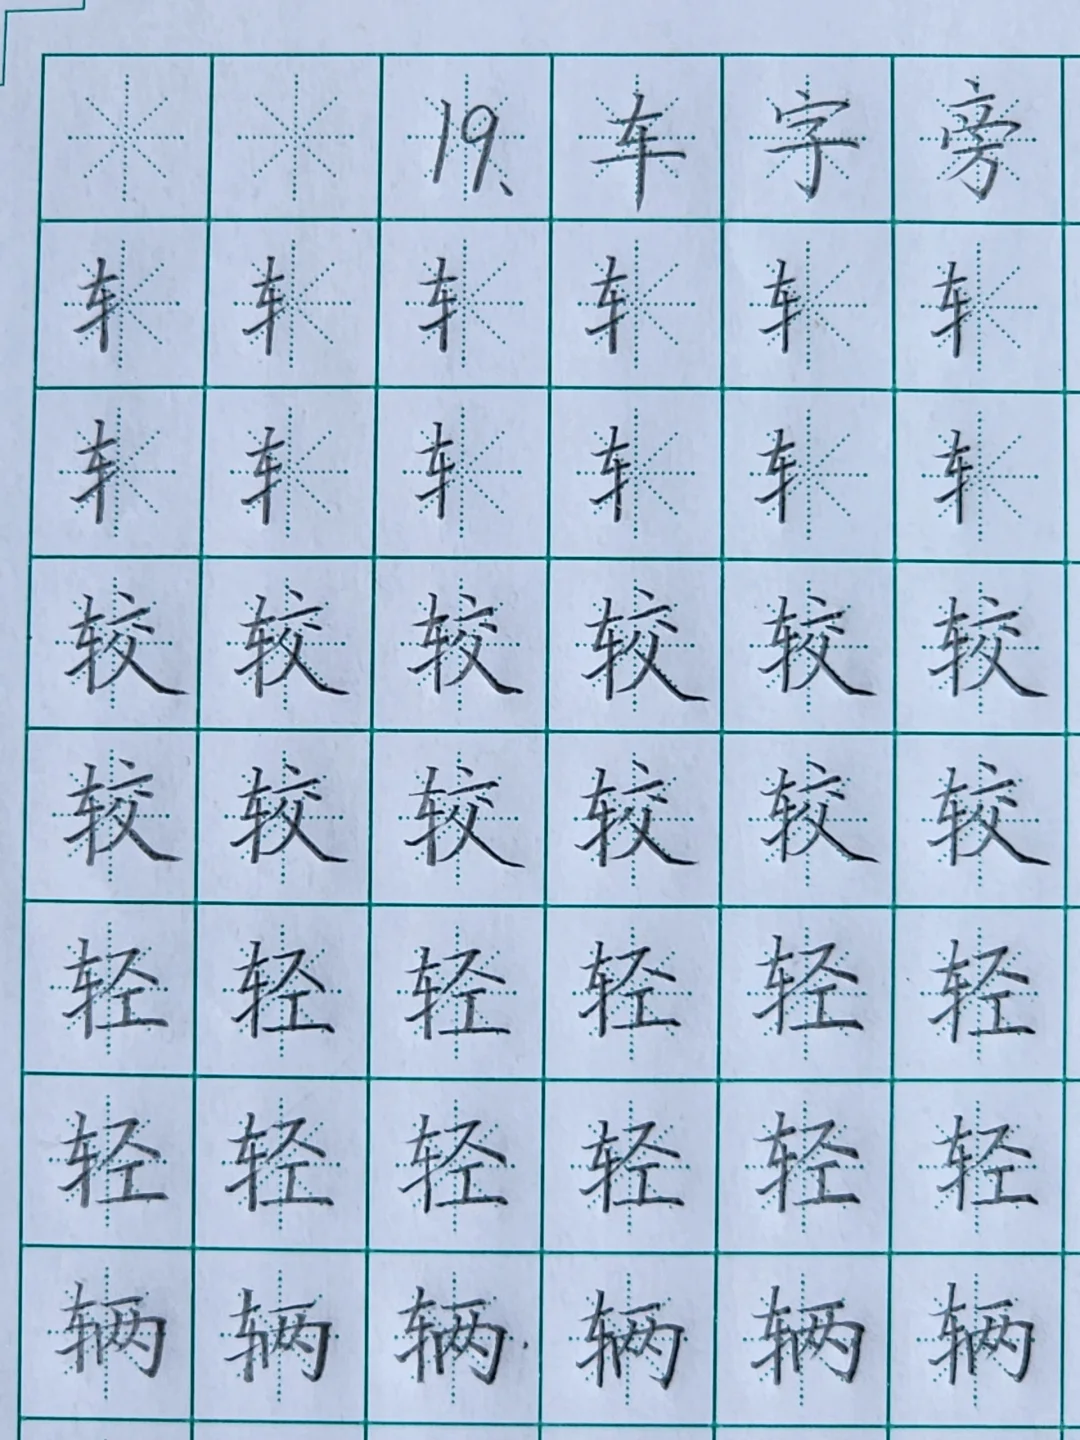 19、车字旁
车车车车车车
车车车车车车
较较较较较较
较较较较较较
轻轻轻轻轻轻
轻轻轻轻轻轻
辆辆辆辆辆辆